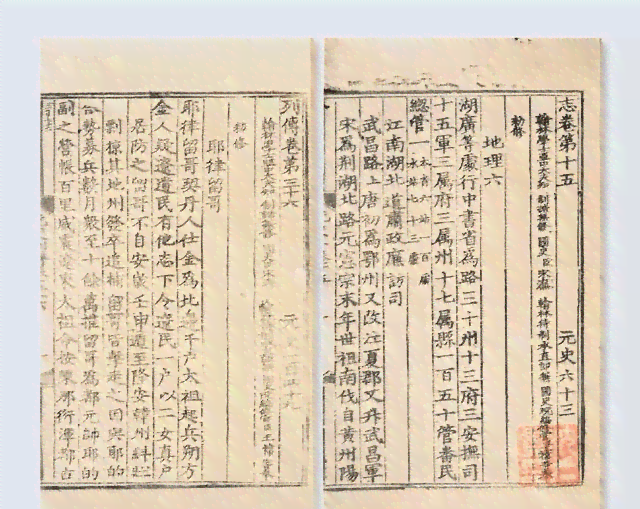 志卷第十五 元史六十三
翰林學士亞中大夫知 制誥兼修 國史臣宋濂 翰林待制承直郎兼 國史院編修官臣王禕等奉
勑修
地理六
湖廣等處行中書省爲路三十州十三府三安撫司
十五軍三屬府三屬州十七屬縣一百五十管番民
總管一
江南湖北道肅政廉訪司
武昌路上唐初爲鄂州又改江夏郡又升武昌軍
宋爲荊湖北路元憲宗末年世祖南伐自黃州陽
列傳卷第三十六 元
翰林學士亞中大夫知 制誥兼修
勑修
耶律留哥
耶律留哥契丹人仕金爲北邊千戶太祖起兵朔方
金人疑遼遺民有他志下令遼民一戶以二女真戶
居防之留哥不自安歲壬申遁至隆安韓州糾壯
剽掠其地州發卒追捕留哥皆擊走之因與耶的
合勢募兵數月衆至十餘萬推留哥爲都元帥耶的
副之營帳百里威震遼東太祖命按陳那衍渾都古